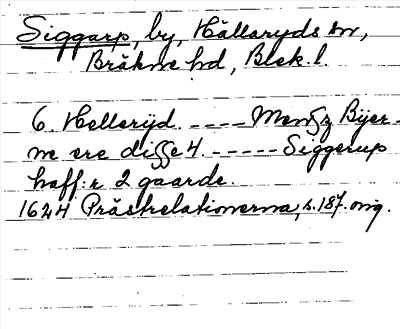 Siggarp, by, Hällaryds sn,
Bräkne hd, Blek. l.
6. Hellerijd. ---- Mens Bijer-
ne ere disse 4. ----- Siggerup
haff:r 2 gaarde.
1624 Prästrelationerna, s. 187. orig.